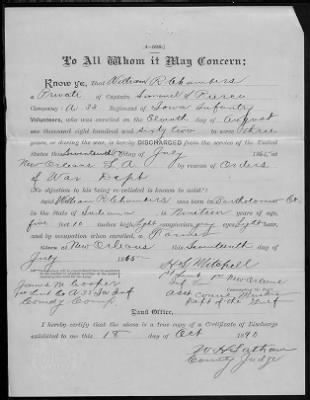 To All Whom it May Concern:
Know ye, That William R Chambers
a Private of Captain Samuel S Pierce
Company A 33 Regiment of Iowa Infantry
Volunteers, who was enrolled on the Eleventh day of August
one thousand eight hundred and sixty two to serve three
years, or during the war, is hereby DISCHARGED from the service of the United
States this Seventeenth day of July 1865, at
New Orleans L.A by reason of Orders
of War Dept
No objection to his being re-enlisted is known to exist.
Said William R Chambers was born in Bartholomew Co.
in the State of Indiana is Nineteen years of age,
five feet 10 inches high, Light complexion, gray eyes, Light hair,
and by occupation, when enrolled, a Farmer
Given at New Orleans this Seventeenth day of
July 1865
James M Cooper
1st Lieut Co A 33 Ia Inf
Comdg Comp.
Land Office,
I hereby certify that the above is a true copy of a Certificate of Discharge
exhibited to me this 18 day of Oct 1890
County Judge